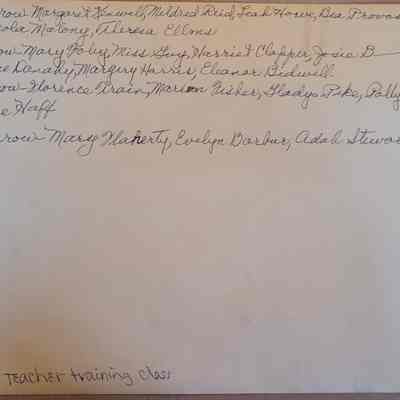 row Margaret Kinwell, Mildred Reid, Leah Howe, Bea Provos
Malony, Theresa Ellms
ow Mary Foley, Miss Guy, Harriet Clapper, Josie D
Danahy, Margery Harris, Eleanor Bidwell
ow Florence Train, Marion Fisher, Gladys Pike, Polly
e Haff
row Mary Flaherty, Evelyn Barbur, Adah Stewar
Teacher training class